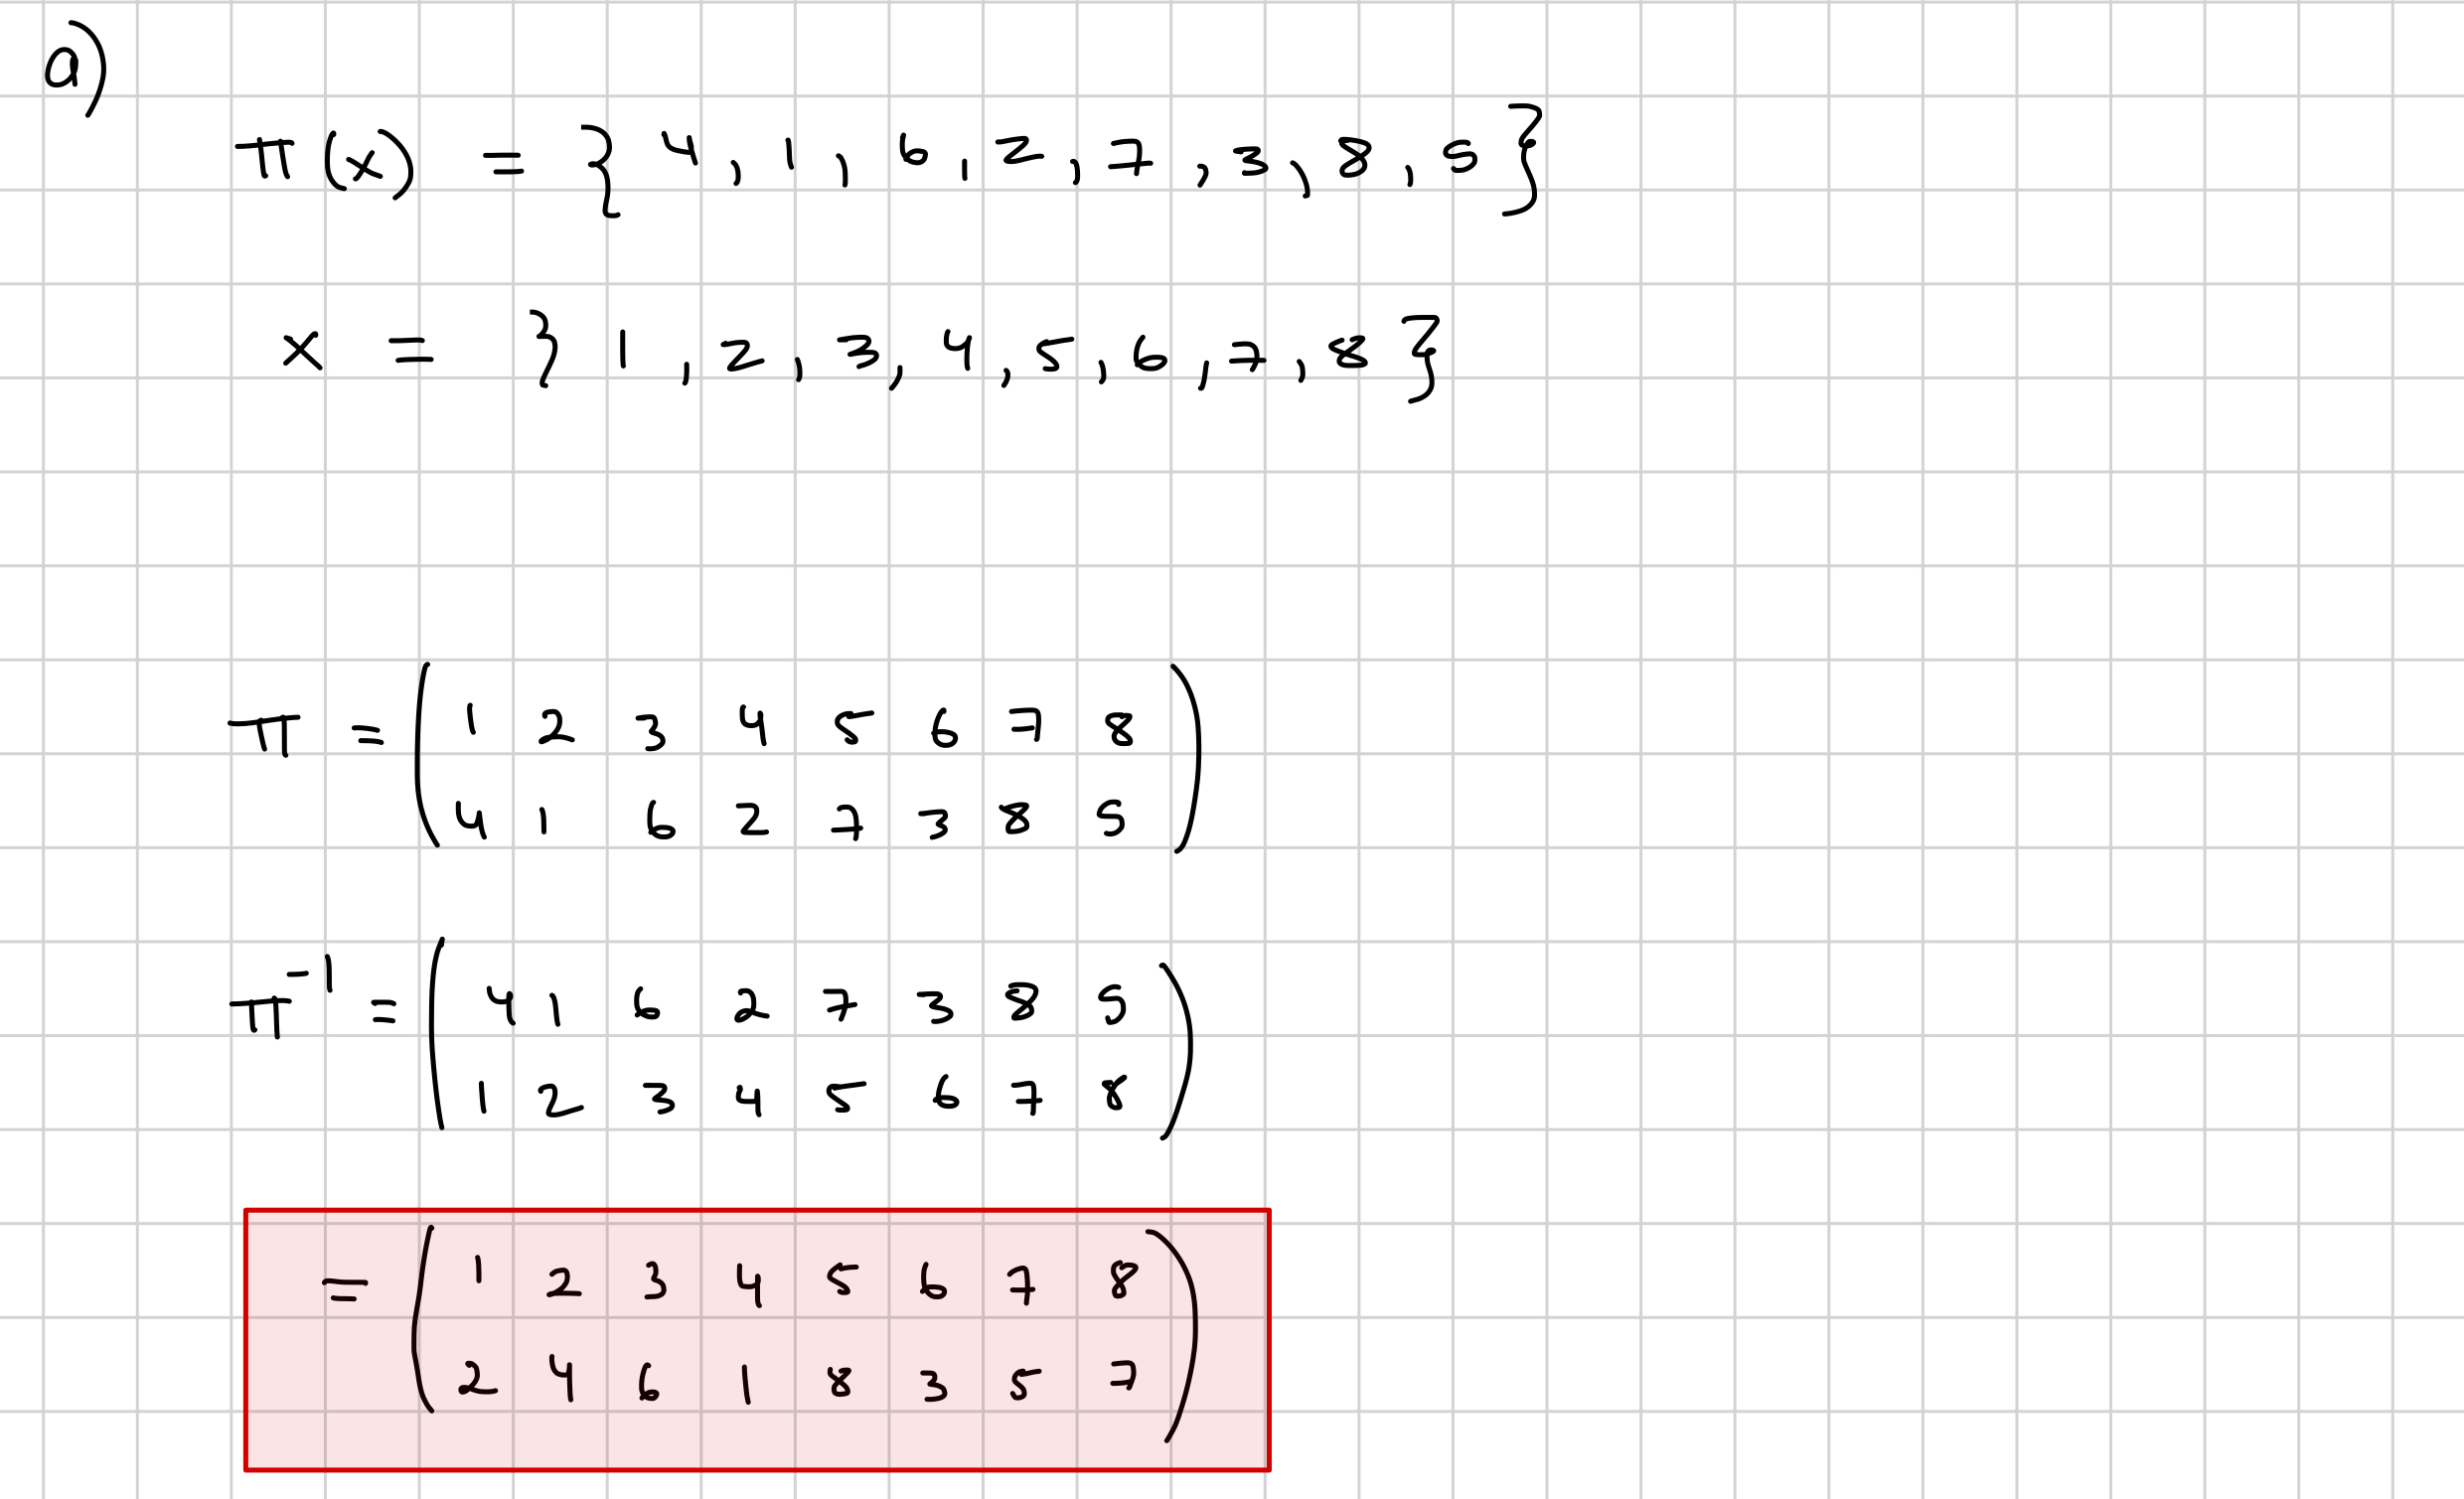 a)
π(x) = { 4, 1, 6, 2, 7, 3, 8, 5 }
x = { 1, 2, 3, 4, 5, 6, 7, 8 }
π = ( 1 2 3 4 5 6 7 8
4 1 6 2 7 3 8 5 )
π⁻¹ = ( 4 1 6 2 7 3 8 5
1 2 3 4 5 6 7 8 )
= ( 1 2 3 4 5 6 7 8
2 4 6 1 8 3 5 7 )